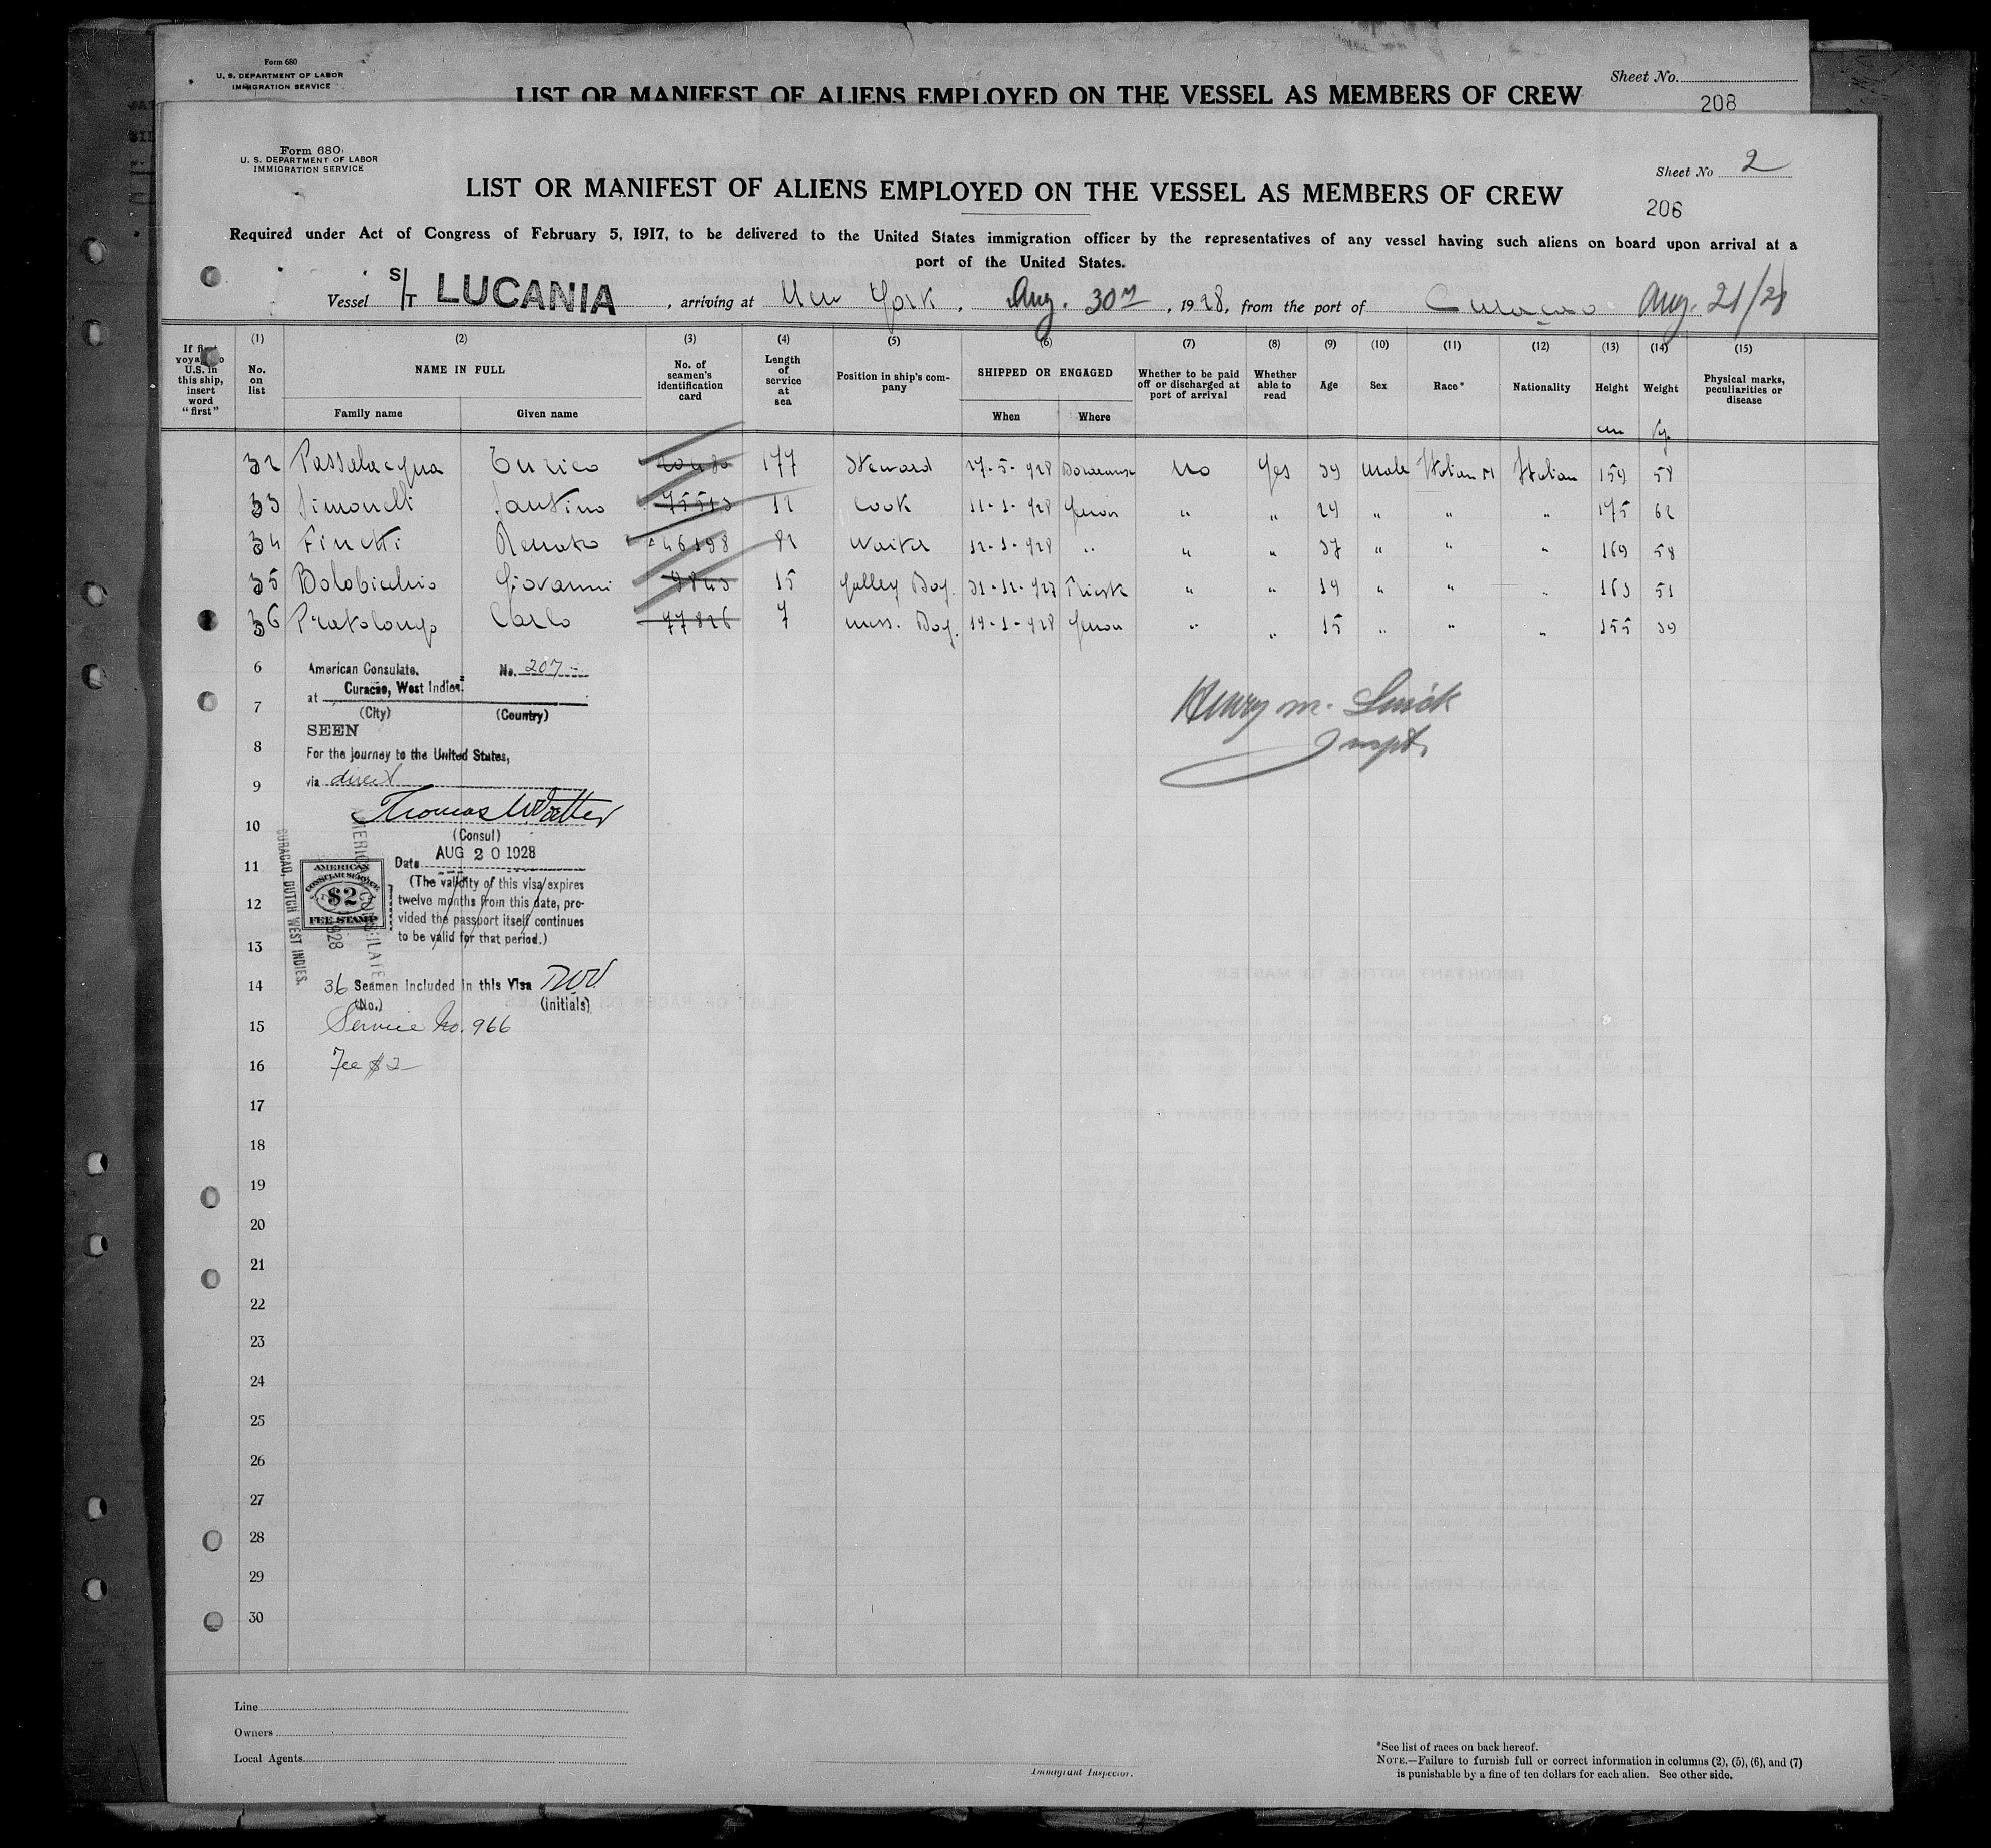 Form 680
U. S. DEPARTMENT OF LABOR
IMMIGRATION SERVICE
Sheet No.
LIST OR MANIFEST OF ALIENS EMPLOYED ON THE VESSEL AS MEMBERS OF CREW
208
Form 680
U. S. DEPARTMENT OF LABOR
IMMIGRATION SERVICE
Sheet No 2
LIST OR MANIFEST OF ALIENS EMPLOYED ON THE VESSEL AS MEMBERS OF CREW
206
Required under Act of Congress of February 5, 1917, to be delivered to the United States immigration officer by the representatives of any vessel having such aliens on board upon arrival at a
port of the United States.
Vessel S/T LUCANIA, arriving at New York, Aug. 30, 1928, from the port of Curaçao Aug. 21/28
If first voyage to U.S. in this ship, insert word "first"
(1) No. on list
(2) NAME IN FULL
Family name Given name
(3) No. of seamen's identification card
(4) Length of service at sea
(5) Position in ship's company
(6) SHIPPED OR ENGAGED
When Where
(7) Whether to be paid off or discharged at port of arrival
(8) Whether able to read
(9) Age
(10) Sex
(11) Race*
(12) Nationality
(13) Height
(14) Weight
(15) Physical marks, peculiarities or disease
32 Passalacqua Enrico 177 Steward 27-5-928 No Yes 39 male Italian Italian 159 58
33 Simonelli Santino 12 Cook 11-1-928 Genoa " " 29 " " " 175 62
34 Finetti Renato 46198 82 Waiter 12-1-928 " " " 37 " " " 169 58
35 Giovanni 15 Galley Boy. 31-12-927 Trieste " " 19 " " " 163 51
36 Pratolongo Carlo 77826 7 mess. Boy. 19-1-928 Genoa " " 15 " " " 155 39
6 American Consulate. No. 207
at Curacão, West Indies
7 (City) (Country)
SEEN
8 For the journey to the United States,
9 via direct
10 Thomas
(Consul)
Date AUG 20 1928
11 AMERICAN CONSULAR SERVICE $2 FEE STAMP
(The validity of this visa expires
12 twelve months from this date, pro-
vided the passport itself continues
13 to be valid for that period.)
AMERICAN CONSULATE
CURACAO, DUTCH WEST INDIES.
14 36 Seamen included in this Visa
(No.) (initials)
15 Service No. 966
16 Fee $2
Henry M.
Inspt.
17
18
19
20
21
22
23
24
25
26
27
28
29
30
Line
Owners
Local Agents
Immigrant Inspector.
*See list of races on back hereof.
NOTE.—Failure to furnish full or correct information in columns (2), (5), (6), and (7)
is punishable by a fine of ten dollars for each alien. See other side.